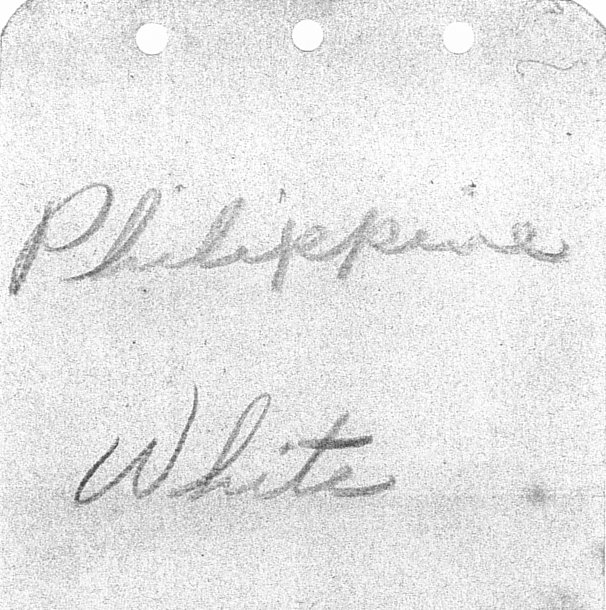 Philippine
White